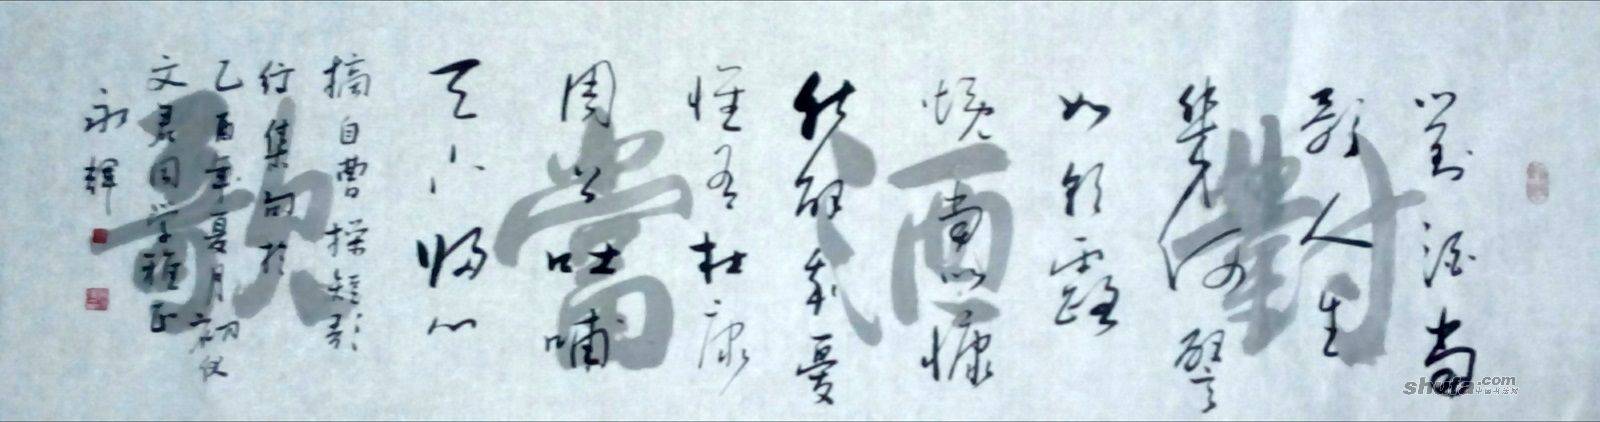 對酒當歌
對酒當
歌人生
幾何譬
如朝露
慨當以慷
解憂
惟有杜康
周公吐哺
天下归心
摘自曹操短歌
行集句於
乙酉年夏月
文君同学雅正
永輝
shufa.com
中国书法网